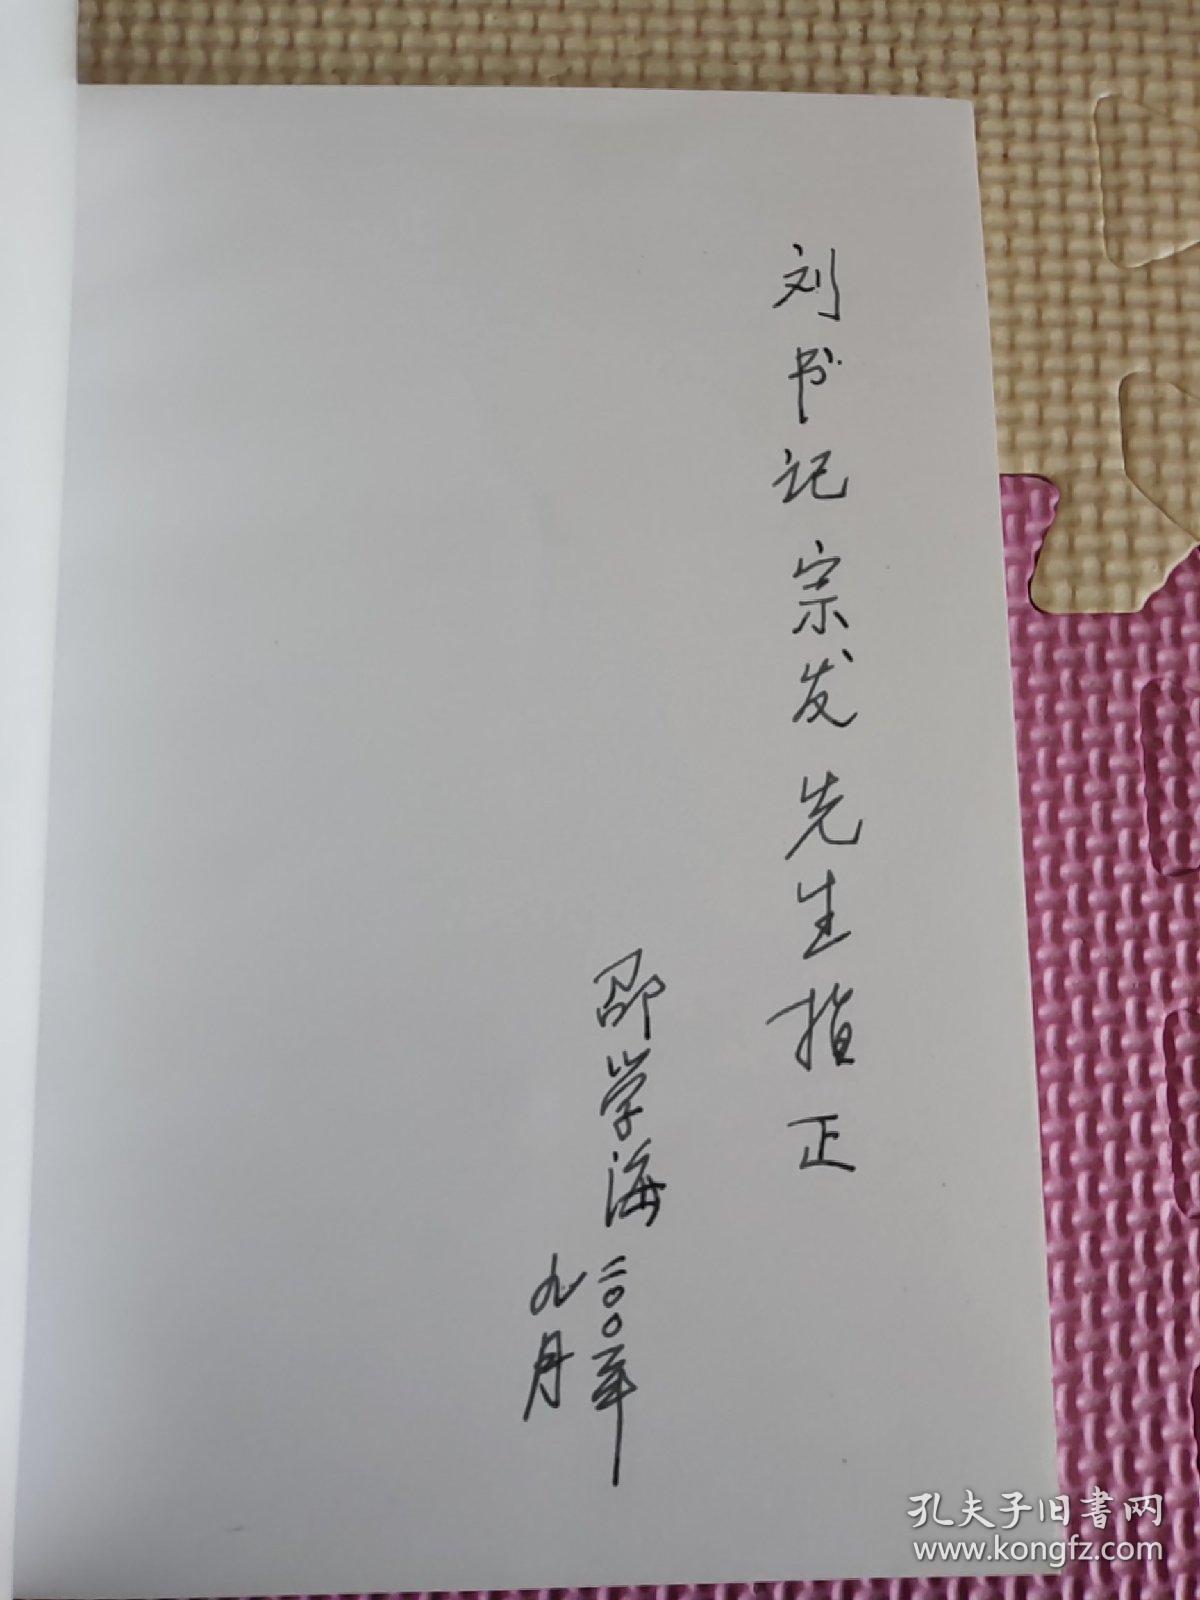 刘书记宗发先生指正
邵学海
二〇〇二年
九月
孔夫子旧書网
www.kongfz.com